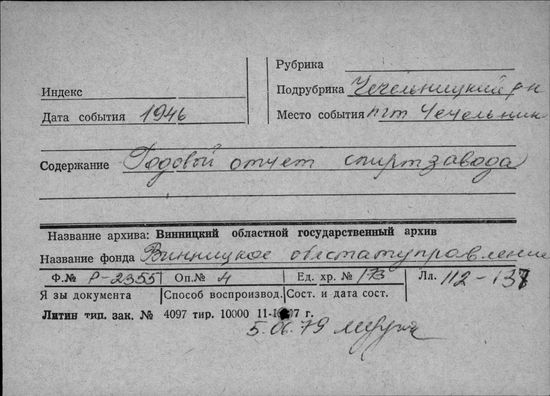 Рубрика
Индекс
Подрубрика Чечельницкий р-н
Дата события 1946
Место события пгт Чечельник
Содержание Годовой отчет спиртзавода
Название архива: Винницкий областной государственный архив
Название фонда Винницкое облстатуправление
Ф.№ Р-2355 Оп.№ 4 Ед. хр. № 173 Лл. 112-137
Я зы документа Способ воспроизвод. Сост. и дата сост.
Литин тип. зак. № 4097 тир. 10000 г.
5.06.79